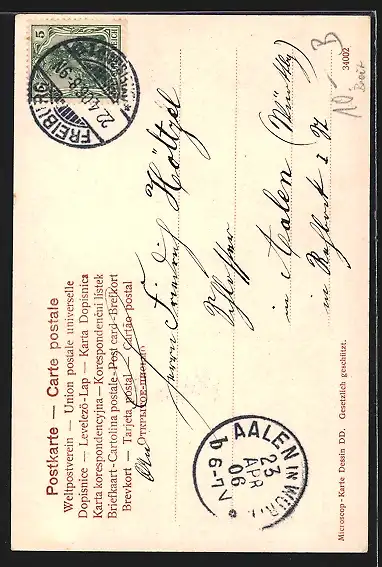 Postkarte — Carte postale
Weltpostverein — Union postale universelle
Dopisnice — Levelező-Lap — Karta Dopisnica
Karta korespondencyjna — Korespondenční lístek
Briefkaart - Cartolina postale - Post card - Brefkort
Brevkort — Tarjeta postal — Cartão postal
ОТКРЫТОЕ ПИСЬМО
5
FREIBURG
22.4.06.8-9N
An
Herrn Friedrich Höltzel
Schlosser
in Aalen (Württbg)
in
AALEN IN WÜRTT.
23
APR
06
6-7V
Microscop-Karte Dessin DD. Gesetzlich geschützt.
34002
10.-
B